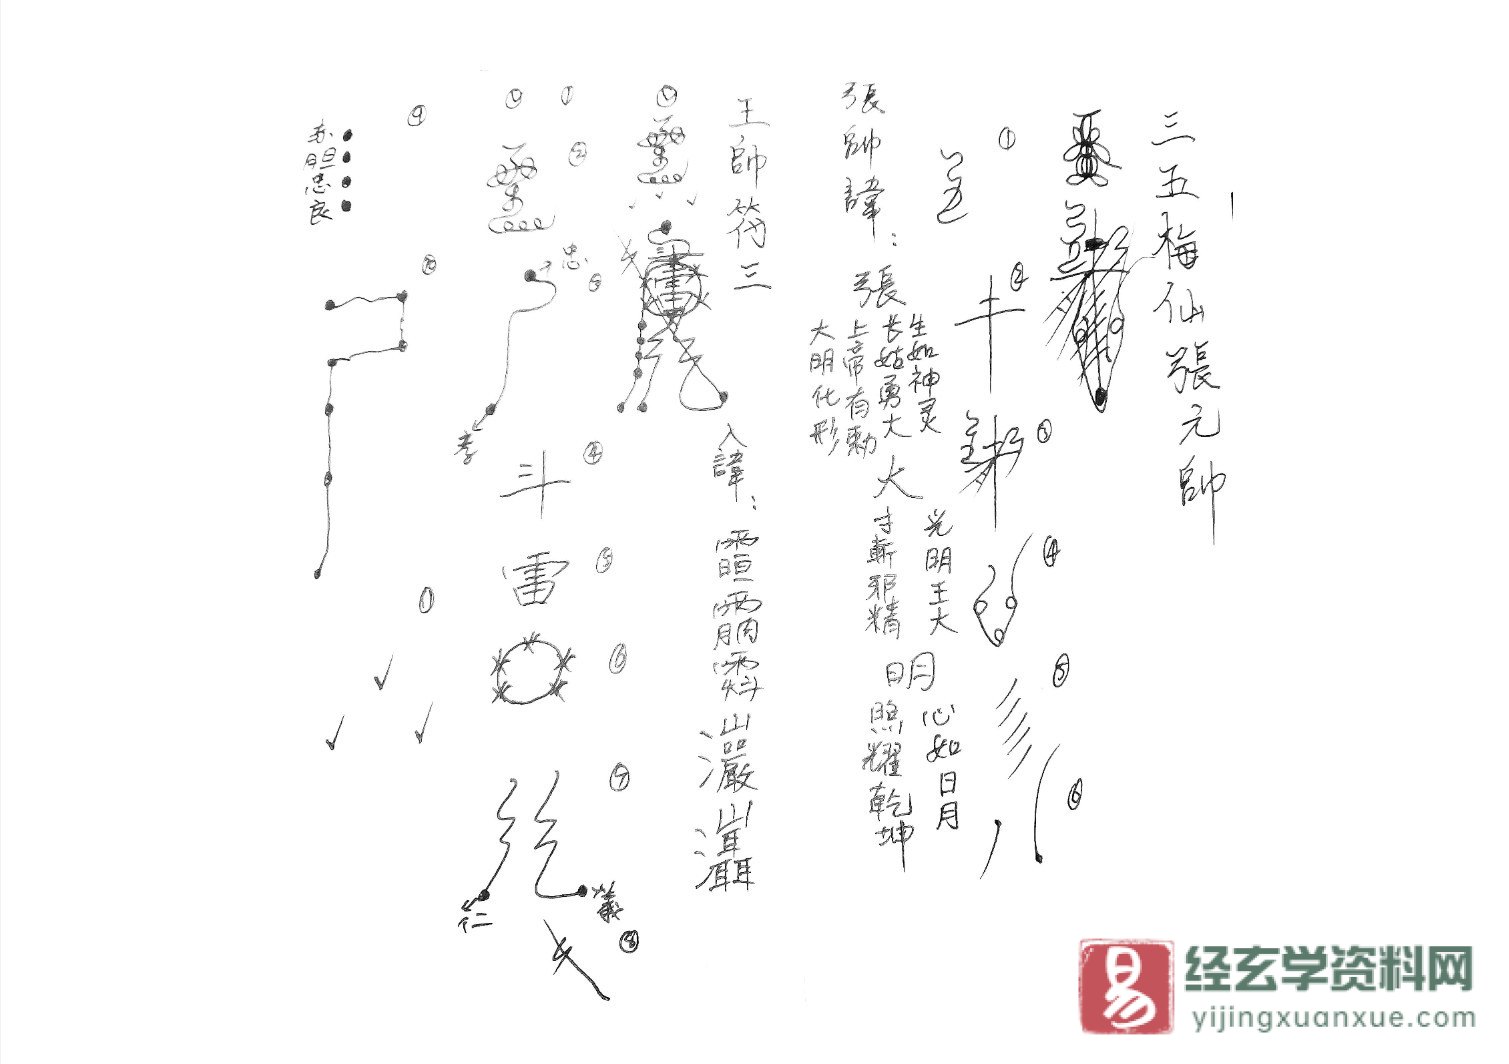 三五梅仙張元帥
①
②
③
④
⑤
⑥
張帥諱：
張
生如神灵
长姑勇大
上帝有勅
大明化形
大
光明王大
寸斬邪精
明
心如日月
照耀乾坤
王帥符三
入諱：
①
②
忠
③
孝
④
斗
⑤
雷
⑥
⑦
仁
義
⑧
⑨
赤胆忠良
⑩
经玄学资料网
易
yijingxuanxue.com